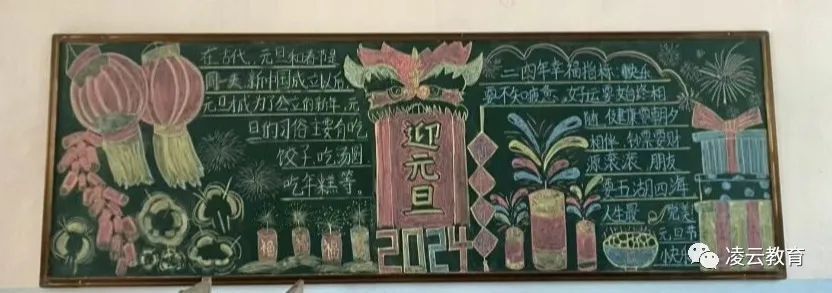 在古代，元旦和春节是
同一天，新中国成立以后
元旦成为了公立的新年，元
旦的习俗主要有吃
饺子、吃汤圆、
吃年糕等。
迎元旦
2024
福
二四年幸福指标：快乐
要不知疲惫，好运要始终相
随，健康要朝夕
相伴，钞票要财
源滚滚，朋友
要五湖四海
人生最
元旦节
快乐
凌云教育